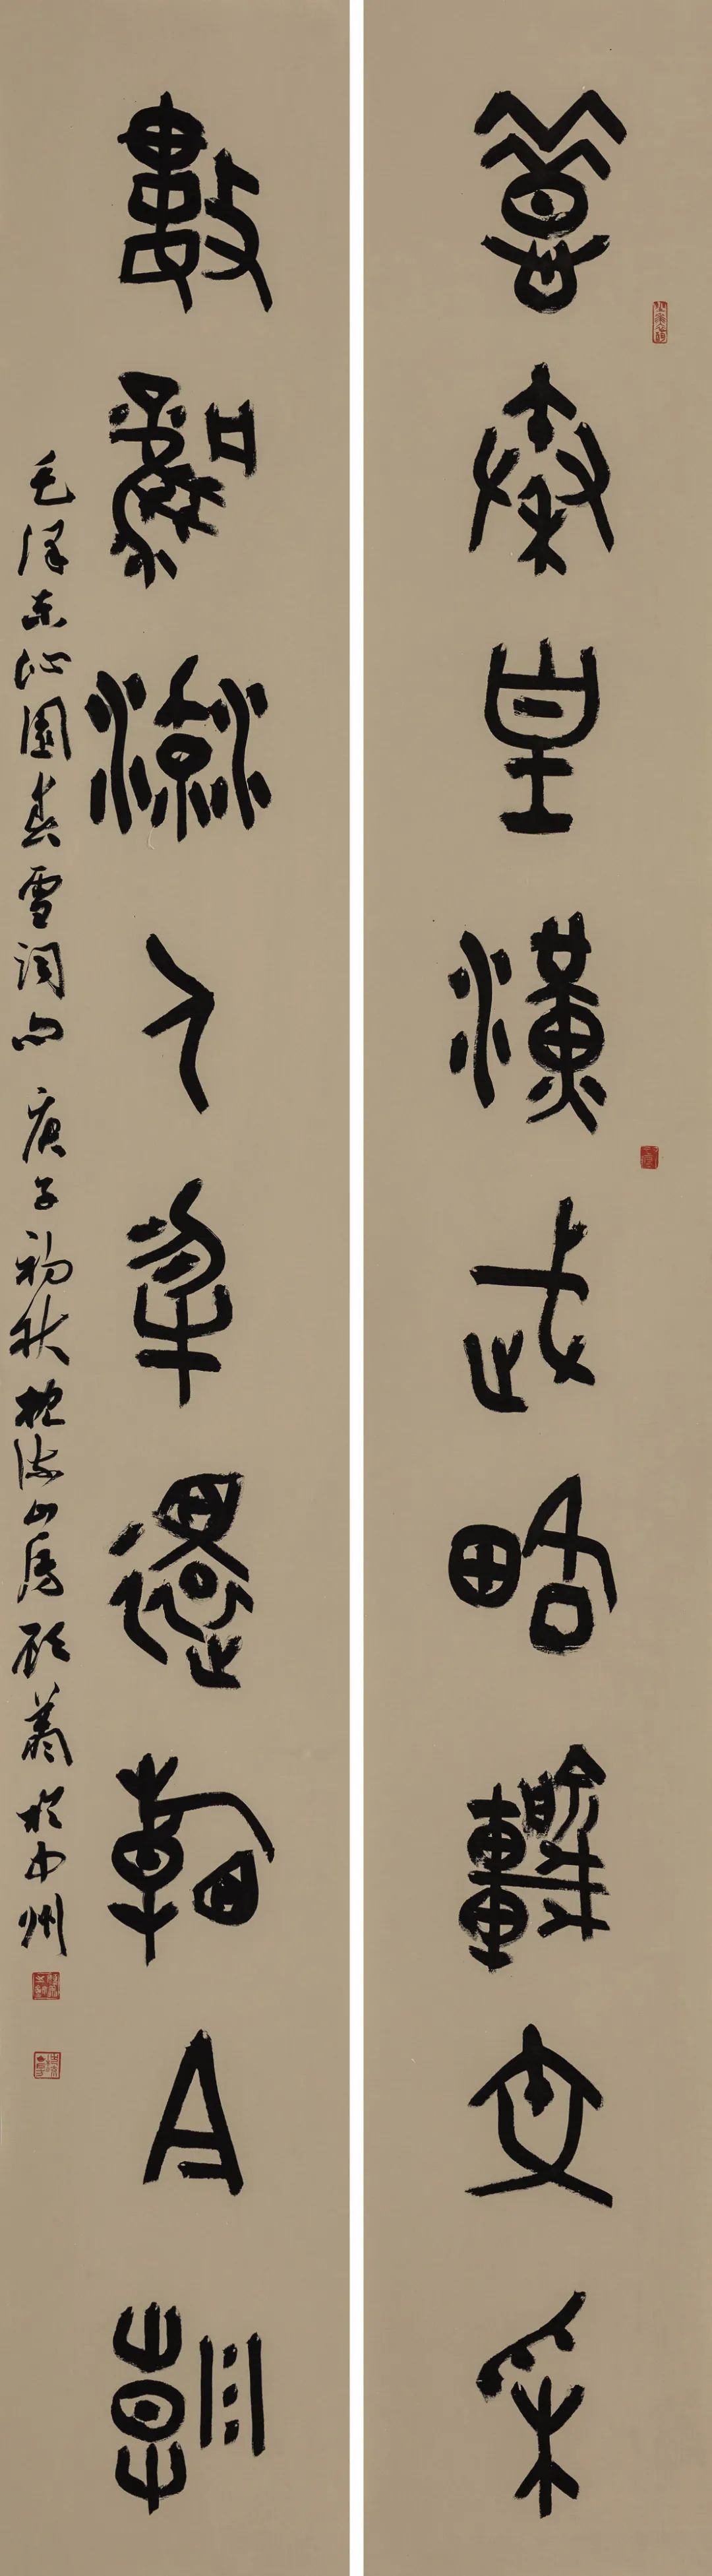 惜秦皇漢武略輸文采
數風流人物還看今朝
毛澤东沁園春雪詞句 庚子初秋枕山房於中州